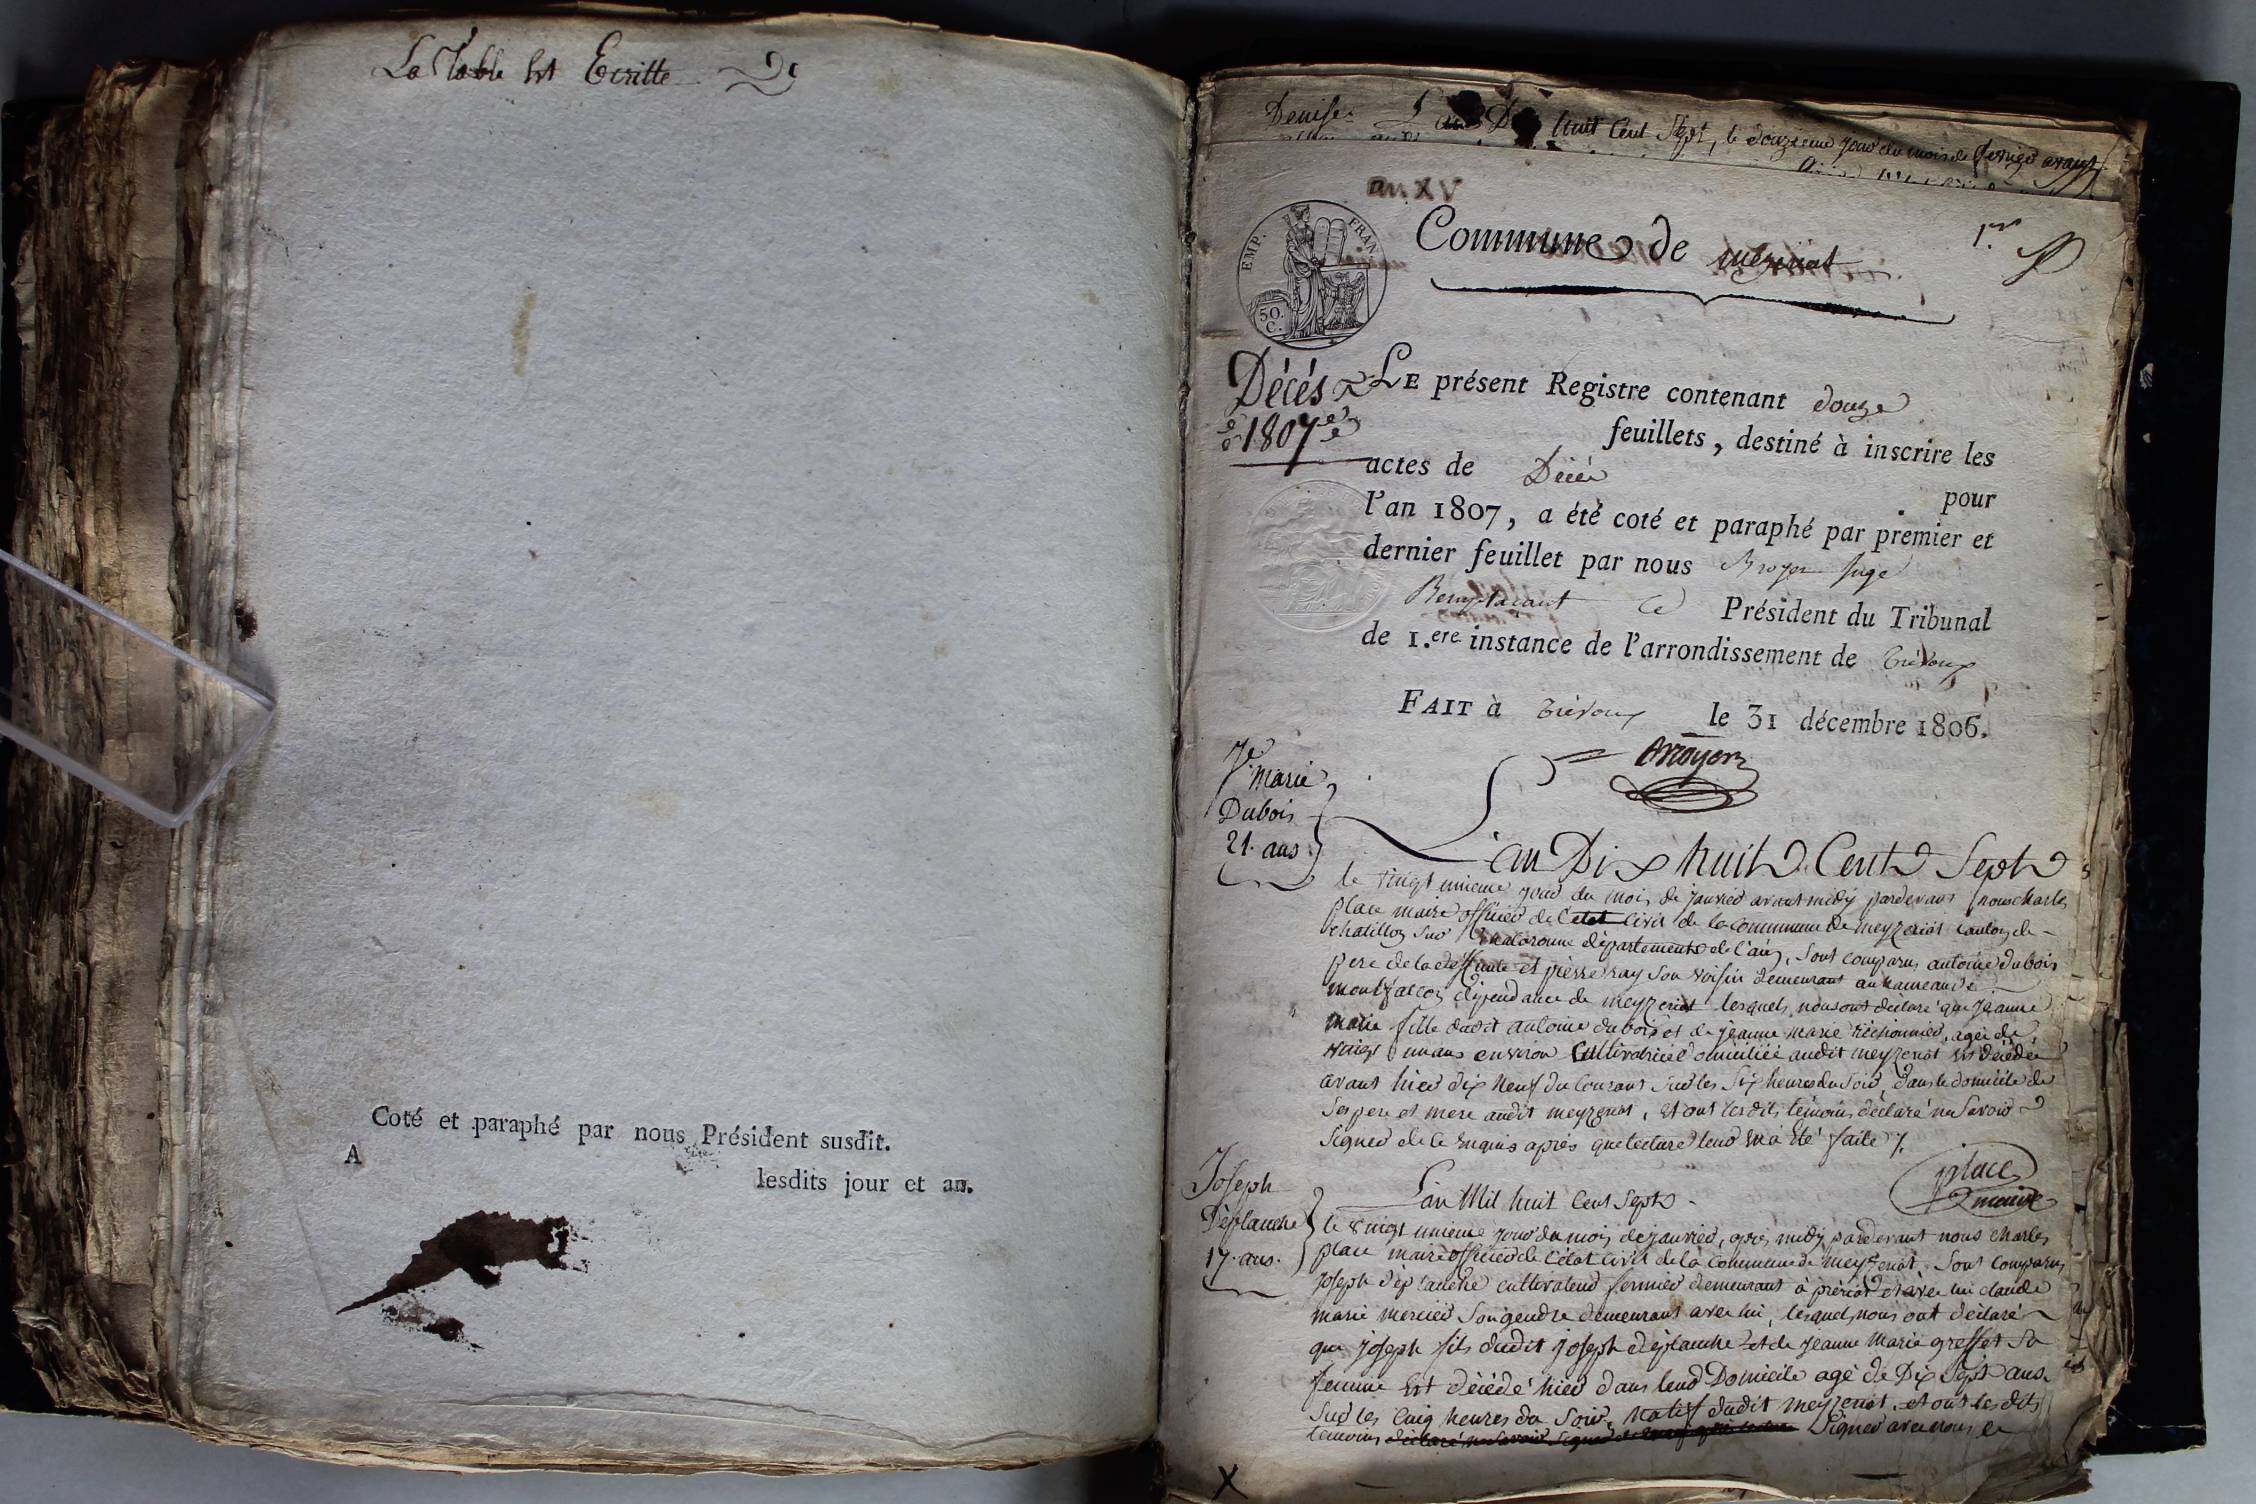 La Table Est Ecritte
Coté et paraphé par nous Président susdit.
A
lesdits jour et an.
Denise
L'an Dix huit Cent Sept, le douzieme jour du mois de fevrier avant
an XV
EMP. FRAN.
50.
C.
Commune de mézériat
1.er
Décés
1807
LE présent Registre contenant douze
feuillets, destiné à inscrire les
actes de Décés
pour
l'an 1807, a été coté et paraphé par premier et
dernier feuillet par nous Broyer Juge
Remplacant le Président du Tribunal
de 1.ere instance de l'arrondissement de trévoux
FAIT à trévoux le 31 décembre 1806.
Broyer
Je. marie
Dubois
21. ans
L'an Dix huit Cent Sept
le vingt unieme jour du mois de janvier avant midy pardevant nous charles
place maire officier de l'etat Civil de la commune de meyzeriat canton de
chatillon sur Chalaronne département de l'ain, sont comparus antoine dubois
pere de la deffunte et pierre ray son voisin demeurant au hameau de
montfalcon dépendance de meyzeriat lesquels nous ont déclaré que jeanne
marie fille dudit antoine dubois et de jeanne marie, agée de
vingt un ans environ Cultivatrice domiciliée audit meyzeriat est décédée
avant hier dix neuf du Courant sur les six heures du soir dans le domicile de
ses pere et mere audit meyzeriat, et ont lesdits témoins déclaré ne savoir
signer de ce enquis après que lecture leur en a été faite /.
place
maire
Joseph
Déplanche
17. ans.
L'an Mil huit Cent Sept
le vingt unieme jour du mois de janvier, après midy pardevant nous charles
place maire officier de l'état civil de la Commune de meyzeriat. Sont comparus
Joseph déplanche cultivateur fermier demeurant à et avec lui claude
marie mercier son gendre demeurant avec lui, lesquels nous ont déclaré
que joseph fils dudit joseph déplanche et de jeanne marie greffet sa
femme Est décédé hier dans leur Domicile agé de Dix sept ans
sur les Cinq heures du soir, natif dudit meyzeriat. et ont lesdits
temoins déclaré ne savoir signer de signer avec nous
X